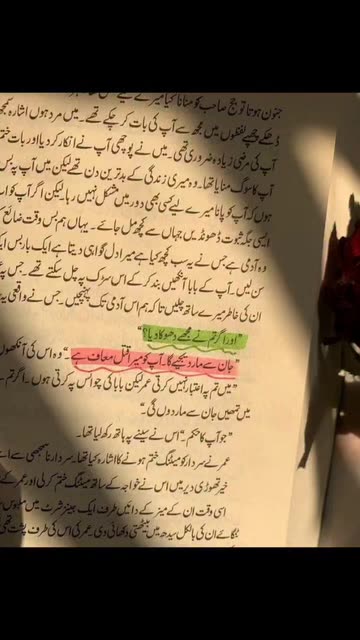 جنون ہوتا تو جج صاحب کو منانا کیا میرے لیے
ڈھکے چھپے لفظوں میں مجھ سے آپ کی بات کر چکے تھے۔ میں مرد ہوں اشارہ سمجھ
آپ کی مرضی زیادہ ضروری تھی۔ میں نے پوچھی آپ نے انکار کر دیا اور بات ختم
آپ کا سوگ منایا تھا۔ وہ میری زندگی کے بدترین دن تھے لیکن میں آپ پہ بس
ہوں کہ آپ کو پانا میرے لیے کسی بھی دور میں مشکل نہیں رہا لیکن اگر آپ کو اس
ایسی جگہ ثبوت ڈھونڈیں جہاں سے کچھ مل جائے۔ یہاں ہم بس وقت ضائع
وہ آدمی ہے جس نے یہ سب کچھ کیا ہے میرا دل گواہی دیتا ہے ایک بار بس ا
سن لیں۔ آپ کے بابا آنکھیں بند کر کے اس سڑک پہ چل سکتے تھے۔ جس پہ
ان کی خاطر میرے ساتھ چلیں تاکہ ہم اس آدمی تک پہنچیں۔ جس نے واقعی یہ
"اور اگر تم نے مجھے دھوکا دیا؟"
"جان سے مار دیجیے گا۔ آپ کو میرا قتل معاف ہے۔" وہ اس کی آنکھوں
"میں تم پہ اعتبار نہیں کرتی عمر لیکن بابا کی چوائس پہ کرتی ہوں۔ اگر تم
میں تمہیں جان سے مار دوں گی۔"
"جو آپ کا حکم۔" اس نے سینے پہ ہاتھ رکھ لیا تھا۔
عمر نے سردار کو میٹنگ ختم ہونے کا اشارہ کیا تھا۔ سردار نا سمجھی سے اسے
خیر تھوڑی دیر میں اس نے خواجہ کے ساتھ میٹنگ ختم کر لی اور عمر کے
اسی وقت ان کے میز کے دائیں طرف ایک جینز شرٹ میں ملبوس
ٹکائے ان کی بالکل سیدھ میں بیٹھتی دکھائی دی۔ عمر کی اس کی طرف پشت تھی